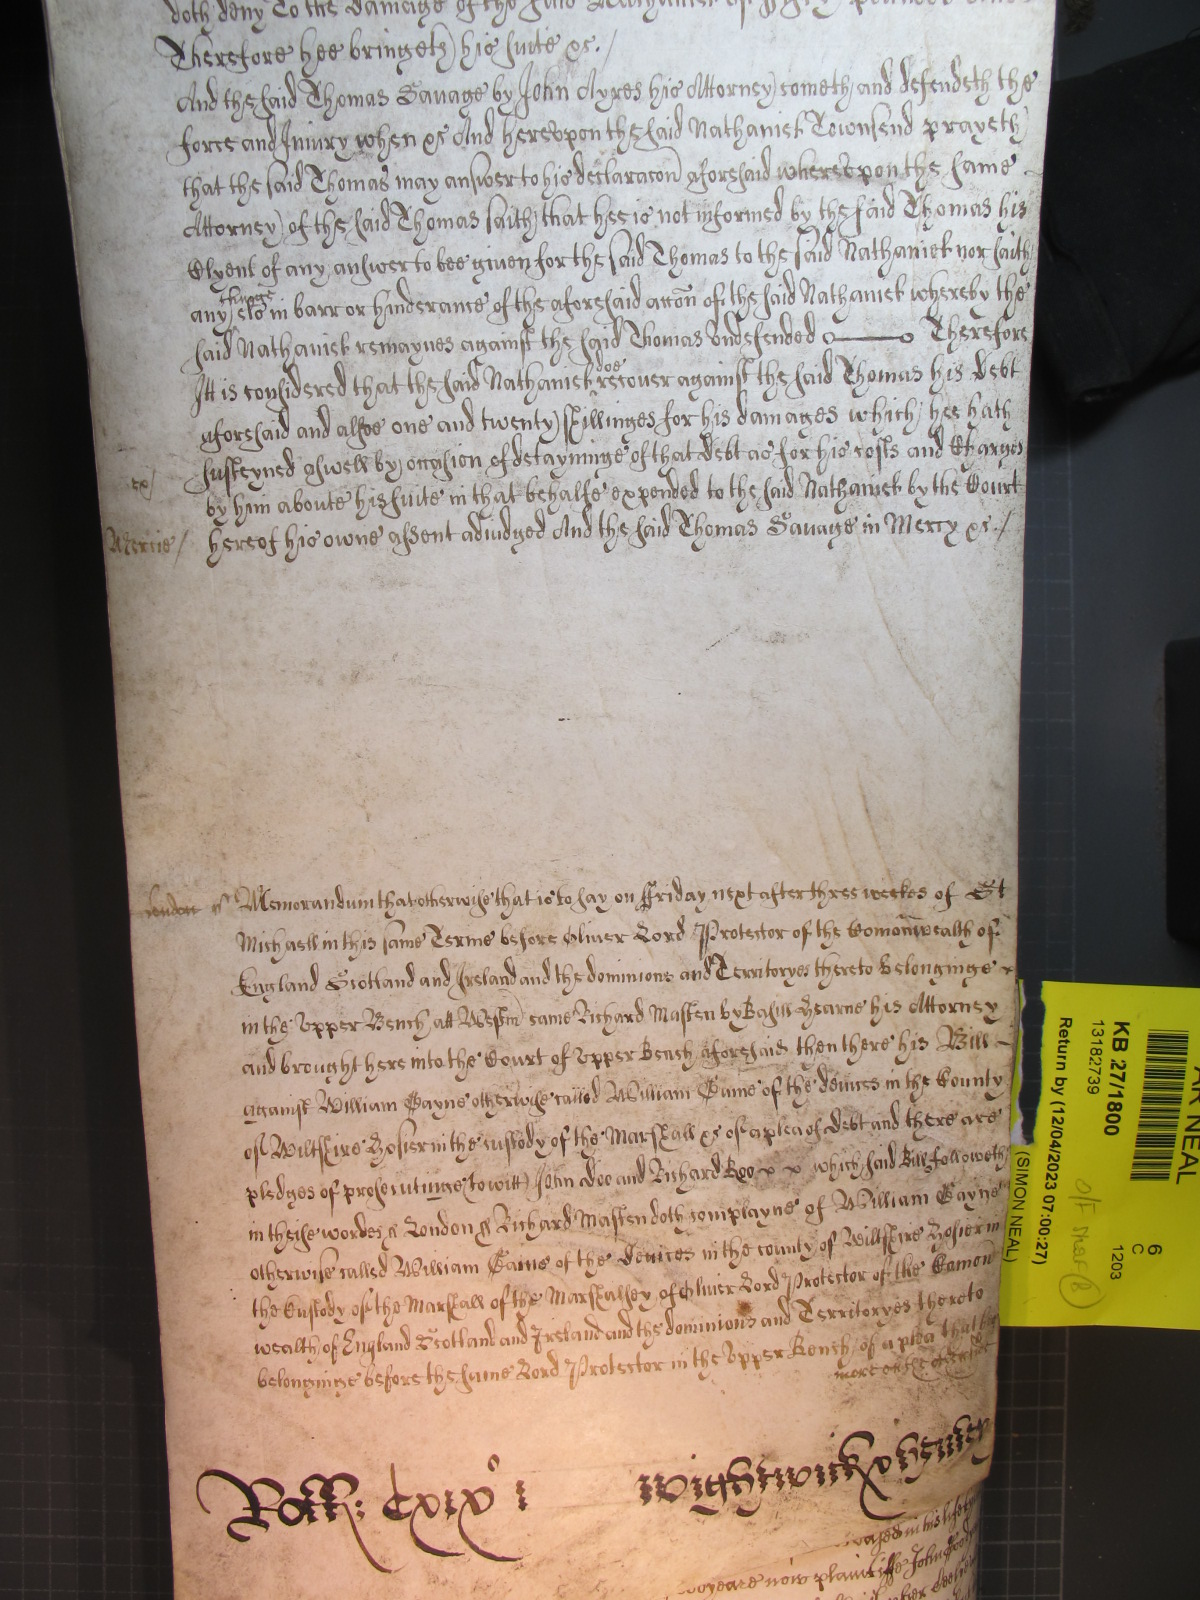 doth deny To the damage of the said Nathaniel of pounds
Therefore hee bringeth his suite &c./
And the said Thomas Savage by John Ayres his Attorney cometh and defendeth the
force and Iniury when &c And herevpon the said Nathaniel Townsend prayeth
that the said Thomas may answer to his declaracon aforesaid wherevpon the same
Attorney of the said Thomas saith that hee is not informed by the said Thomas his
Clyent of any answer to bee given for the said Thomas to the said Nathaniel nor saith
any thinge in barr or hinderance of the aforesaid accon of the said Nathaniel whereby the
said Nathaniel remaynes against the said Thomas vndefended Therefore
Itt is considered that the said Nathaniel doe recover against the said Thomas his debt
aforesaid and alsoe one and twenty shillinges for his damages which hee hath
susteyned aswell by occasion of detayninge of that debt as for his costs and Charges
ex/
by him aboute his suite in that behalfe expended to the said Nathaniel by the Court
Mercie/ hereof his owne assent adiudged And the said Thomas Savage in Mercy &c./
London ss Memorandum that otherwise that is to say on ffriday next after three weekes of St
Michaell in this same Terme before Oliver Lord Protector of the Comonwealth of
England Scotland and Ireland and the dominions and Territoryes thereto belonginge
in the Vpper Bench att Westm came Richard Masten by Basill Hearne his Attorney
and brought here into the Court of Vpper Bench aforesaid then there his Bill
against William Gayne otherwise called William Gaine of the devices in the County
of Wiltshire Hosier in the custody of the Marshall &c of a plea of debt and there are
pledges of prosecutinge (to witt) John Doe and Richard Roo x x which said Bill followeth
in theise wordes ss London ss Richard Masten doth complayne of William Gayne
otherwise called William Gaine of the devices in the county of Wiltshire Hosier in
the Custody of the Marshall of the Marshalsey of Oliver Lord Protector of the Comon
wealth of England Scotland and Ireland and the dominions and Territoryes thereto
belonginge before the same Lord Protector in the Vpper Bench of a plea that hee
more on the other side
Rott: Cxixo i Wightwick
in his life
yeare now plaintiffe John
AR NEAL
KB 27/1800
13182739
Return by (12/04/2023 07:00:27)
(SIMON NEAL)
6
C
1203